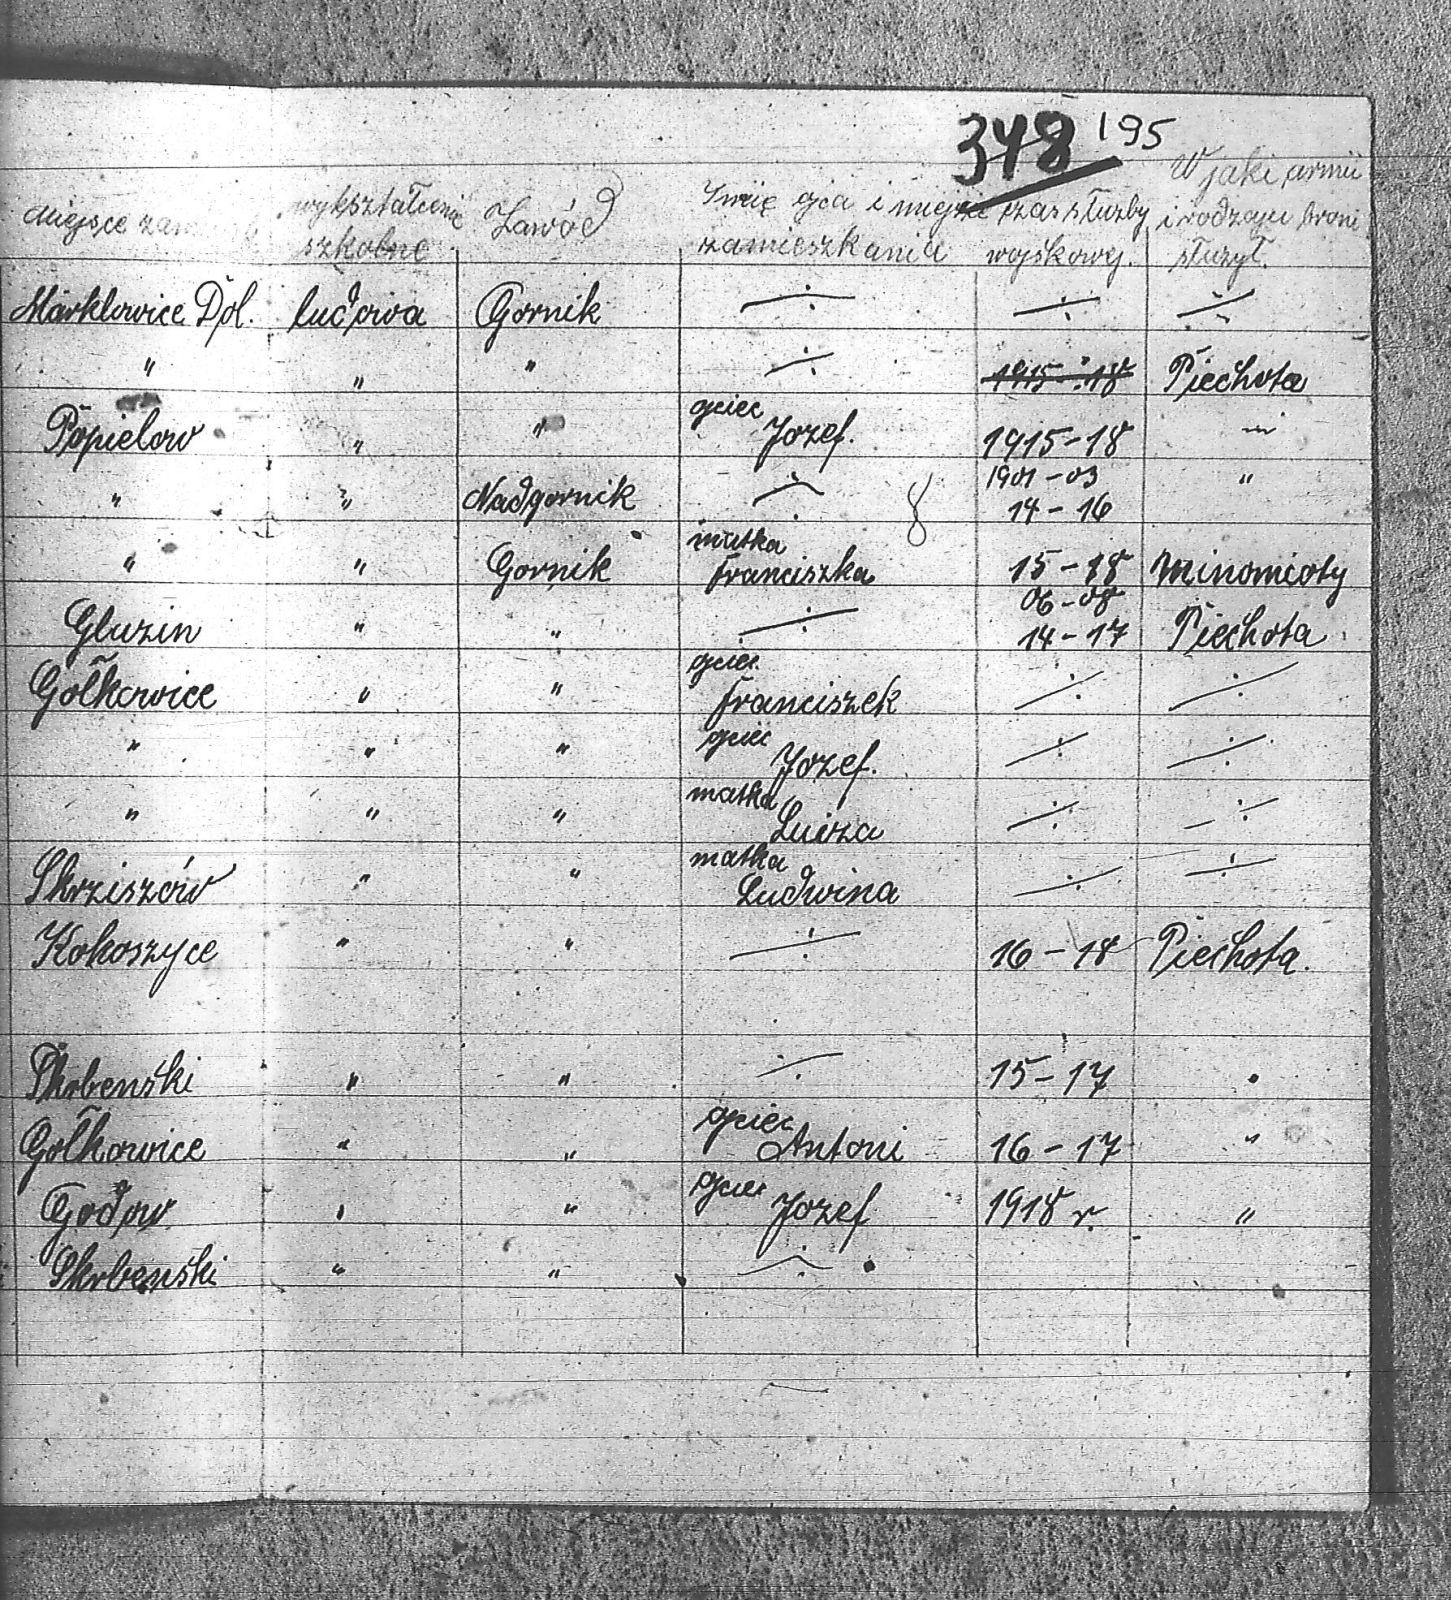 348 195
miejsce wykształcenie szkolne Zawód Imię ojca i miejsce zamieszkania czas służby wojskowej. W jaki armii i rodzaju broni służył.
Marklowice Dol. ludowa Gornik ÷ ÷ ÷
" " " ÷ 1915-18 Piechota
Popielow " " ojciec Jozef. 1915-18 "
" " Nadgornik ÷ 1901-03 14-16 "
" " Gornik matka Franciszka 15-18 Minomioty
Gluzin " " ÷ 06-08 14-17 Piechota
Gołkowice " " ojciec Franciszek ÷ ÷
" " " ojciec Jozef. ÷ ÷
" " " matka Luiza ÷ ÷
Skrziszów " " matka Ludwina ÷ ÷
Kokoszyce " " ÷ 16-18 Piechota.
Skrbenski " " ÷ 15-17 "
Gołkowice " " ojciec Antoni 16-17 "
Godow " " ojciec Jozef 1918 r. "
Skrbenski " " ÷